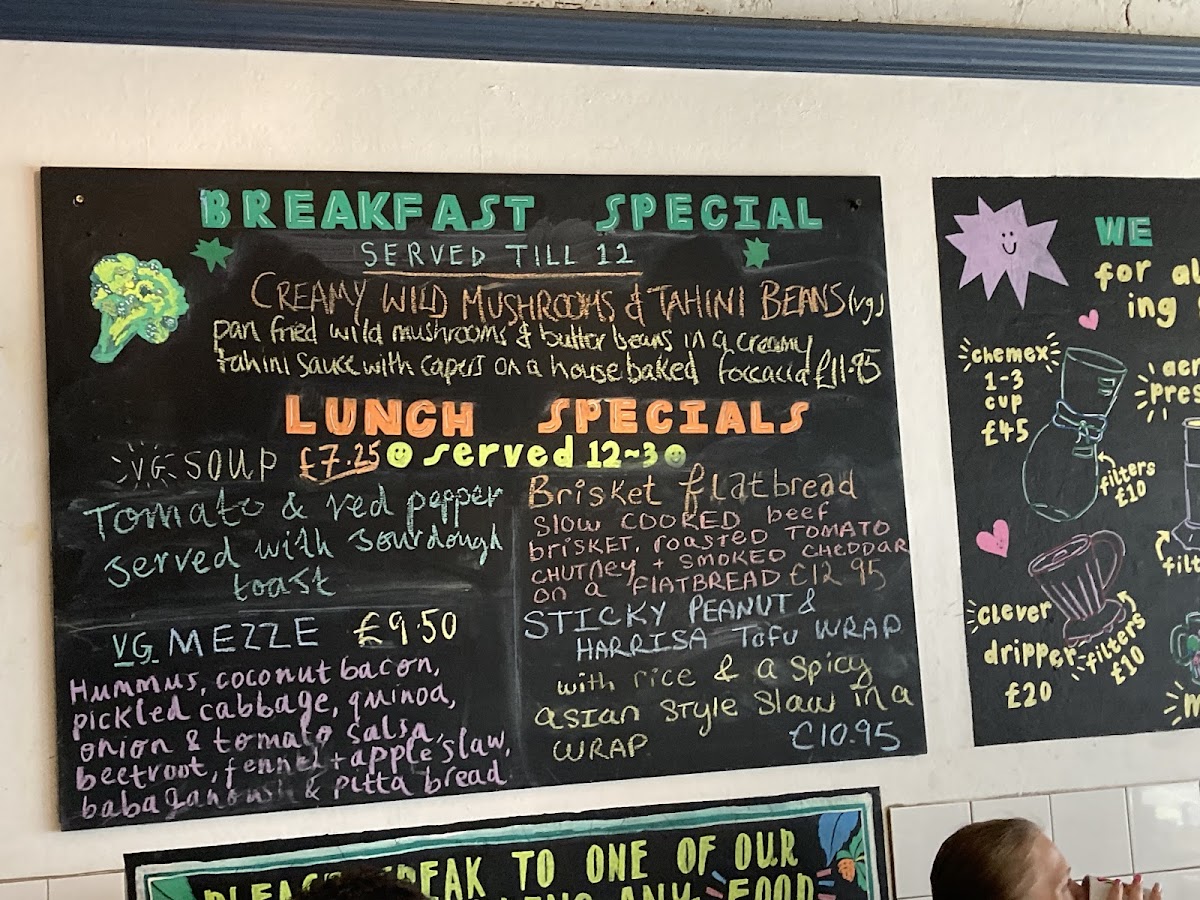 BREAKFAST SPECIAL
SERVED TILL 12
CREAMY WILD MUSHROOMS & TAHINI BEANS (vg)
pan fried wild mushrooms & butter beans in a creamy
tahini sauce with capers on a house baked foccacia £11.95
LUNCH SPECIALS
VG SOUP £7.25 served 12~3
Tomato & red pepper
served with sourdough
toast
VG MEZZE £9.50
Hummus, coconut bacon,
pickled cabbage, quinoa,
onion & tomato salsa,
beetroot, fennel + apple slaw,
babaganoush & pitta bread
Brisket flatbread
SLOW COOKED beef
brisket, roasted TOMATO
CHUTNEY + SMOKED CHEDDAR
on a FLATBREAD £12.95
STICKY PEANUT &
HARRISA Tofu WRAP
with rice & a spicy
asian style slaw in a
WRAP £10.95
WE
for al
ing
chemex
1-3
cup
£45
filters
£10
aer
pres
filt
clever
dripper
£20
filters
£10
M
PLEASE SPEAK TO ONE OF OUR
ANY FOOD